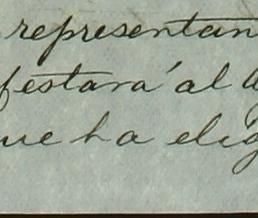 representan
festará al
ue ha elig